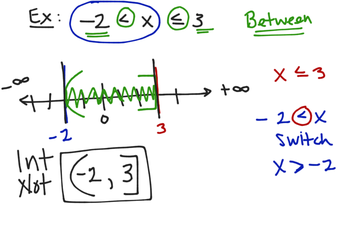 Ex: -2 < x ≤ 3 Between
-∞ +∞
-2 0 3
x ≤ 3
-2 < x
Switch
x > -2
Int
Not
(-2, 3]